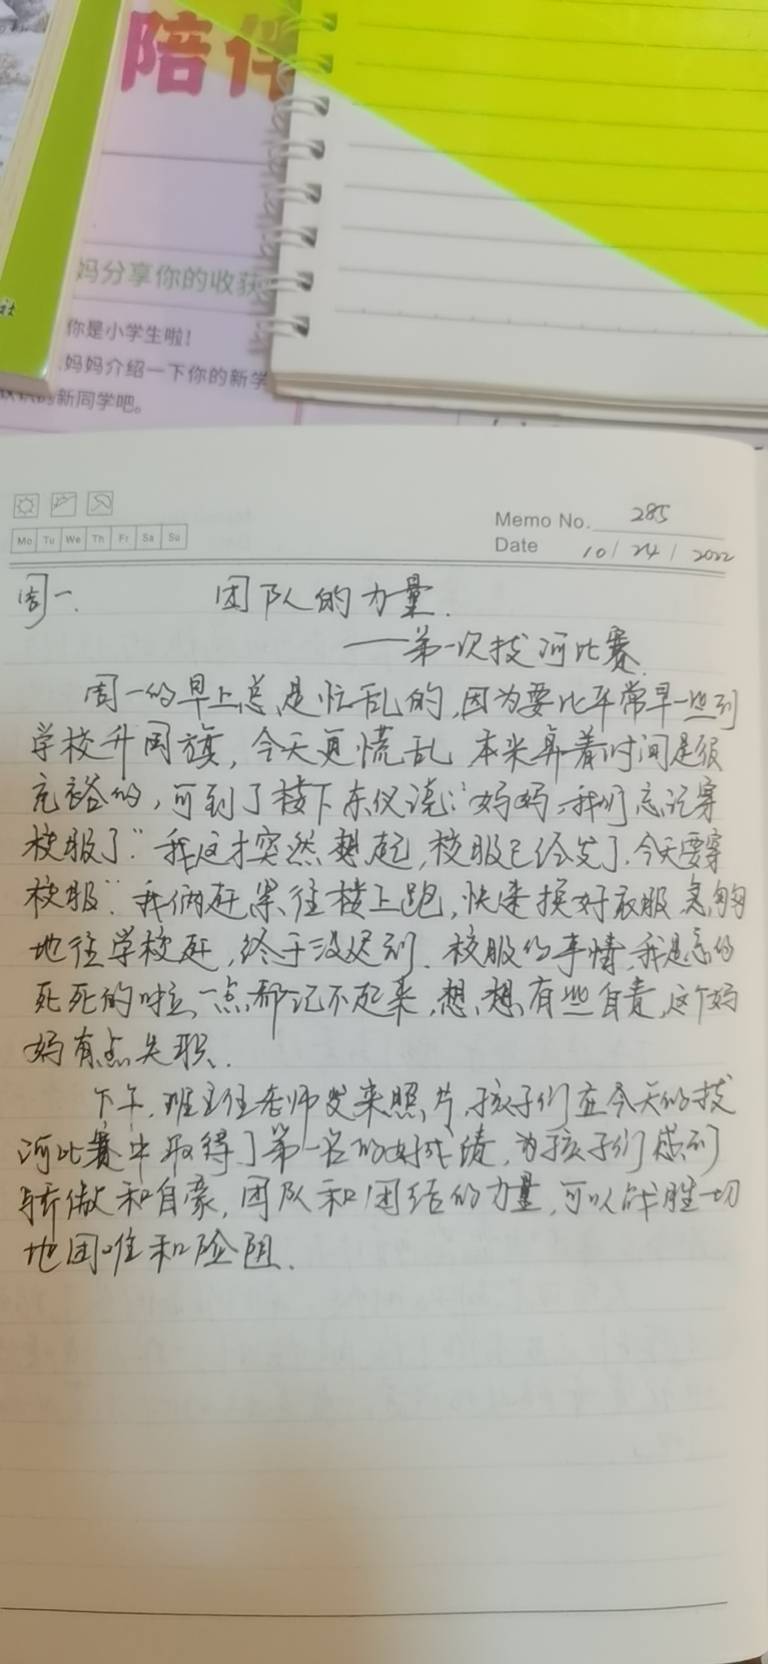 陪伴
妈分享你的收获
你是小学生啦!
妈妈介绍一下你的新学
新同学吧。
社
Memo No. 285
Mo Tu We Th Fr Sa Su
Date 10/24/2022
周一. 团队的力量.
——第一次拔河比赛.
周一的早上总是忙乱的,因为要比平常早一些到
学校升国旗,今天更慌乱 本来算着时间是很
充裕的,可到了楼下东仪说:“妈妈,我们忘记穿
校服了”我这才突然想起,校服已经发了.今天要穿
校服”我俩赶紧往楼上跑,快速换好衣服急匆匆
地往学校赶,终于没迟到.校服的事情,我是忘的
死死的啦,一点都记不起来,想想有些自责,这个妈
妈有点失职.
下午,班主任老师发来照片,孩子们在今天的拔
河比赛中取得了第一名的好成绩,为孩子们感到
骄傲和自豪,团队和团结的力量,可以战胜一切
地困难和险阻.